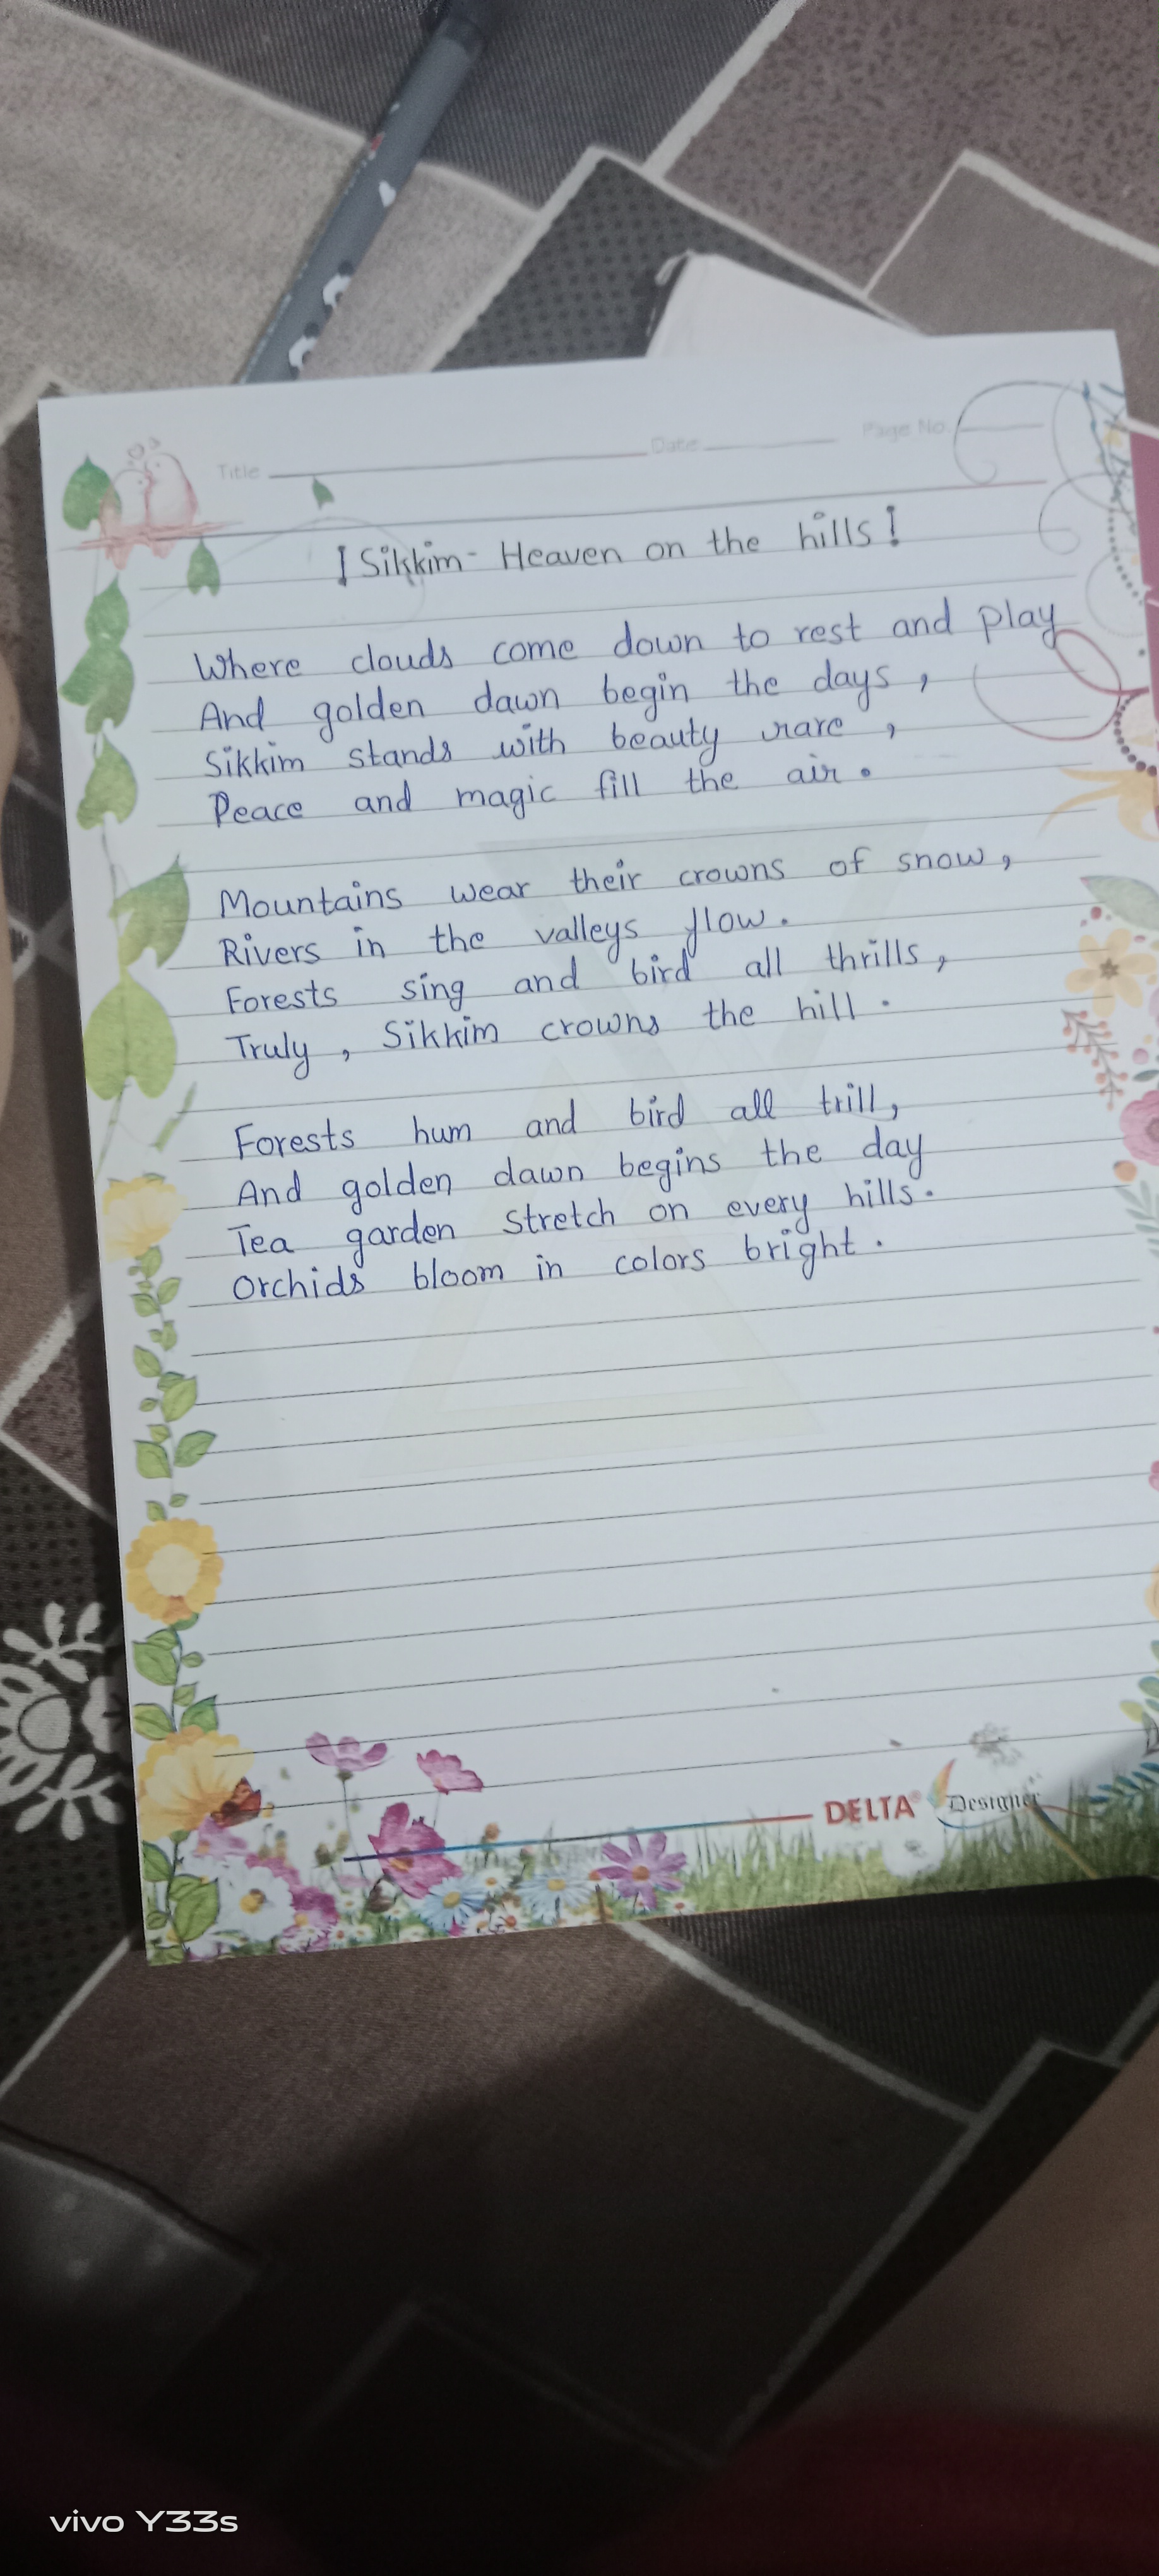 Title Date Page No.
! Sikkim - Heaven on the hills !
Where clouds come down to rest and play
And golden dawn begin the days ,
Sikkim stands with beauty rare ,
Peace and magic fill the air .
Mountains wear their crowns of snow ,
Rivers in the valleys flow .
Forests sing and bird all thrills ,
Truly , Sikkim crowns the hill .
Forests hum and bird all trill ,
And golden dawn begins the day
Tea garden stretch on every hills .
Orchids bloom in colors bright .
DELTA® Designer
vivo Y33s